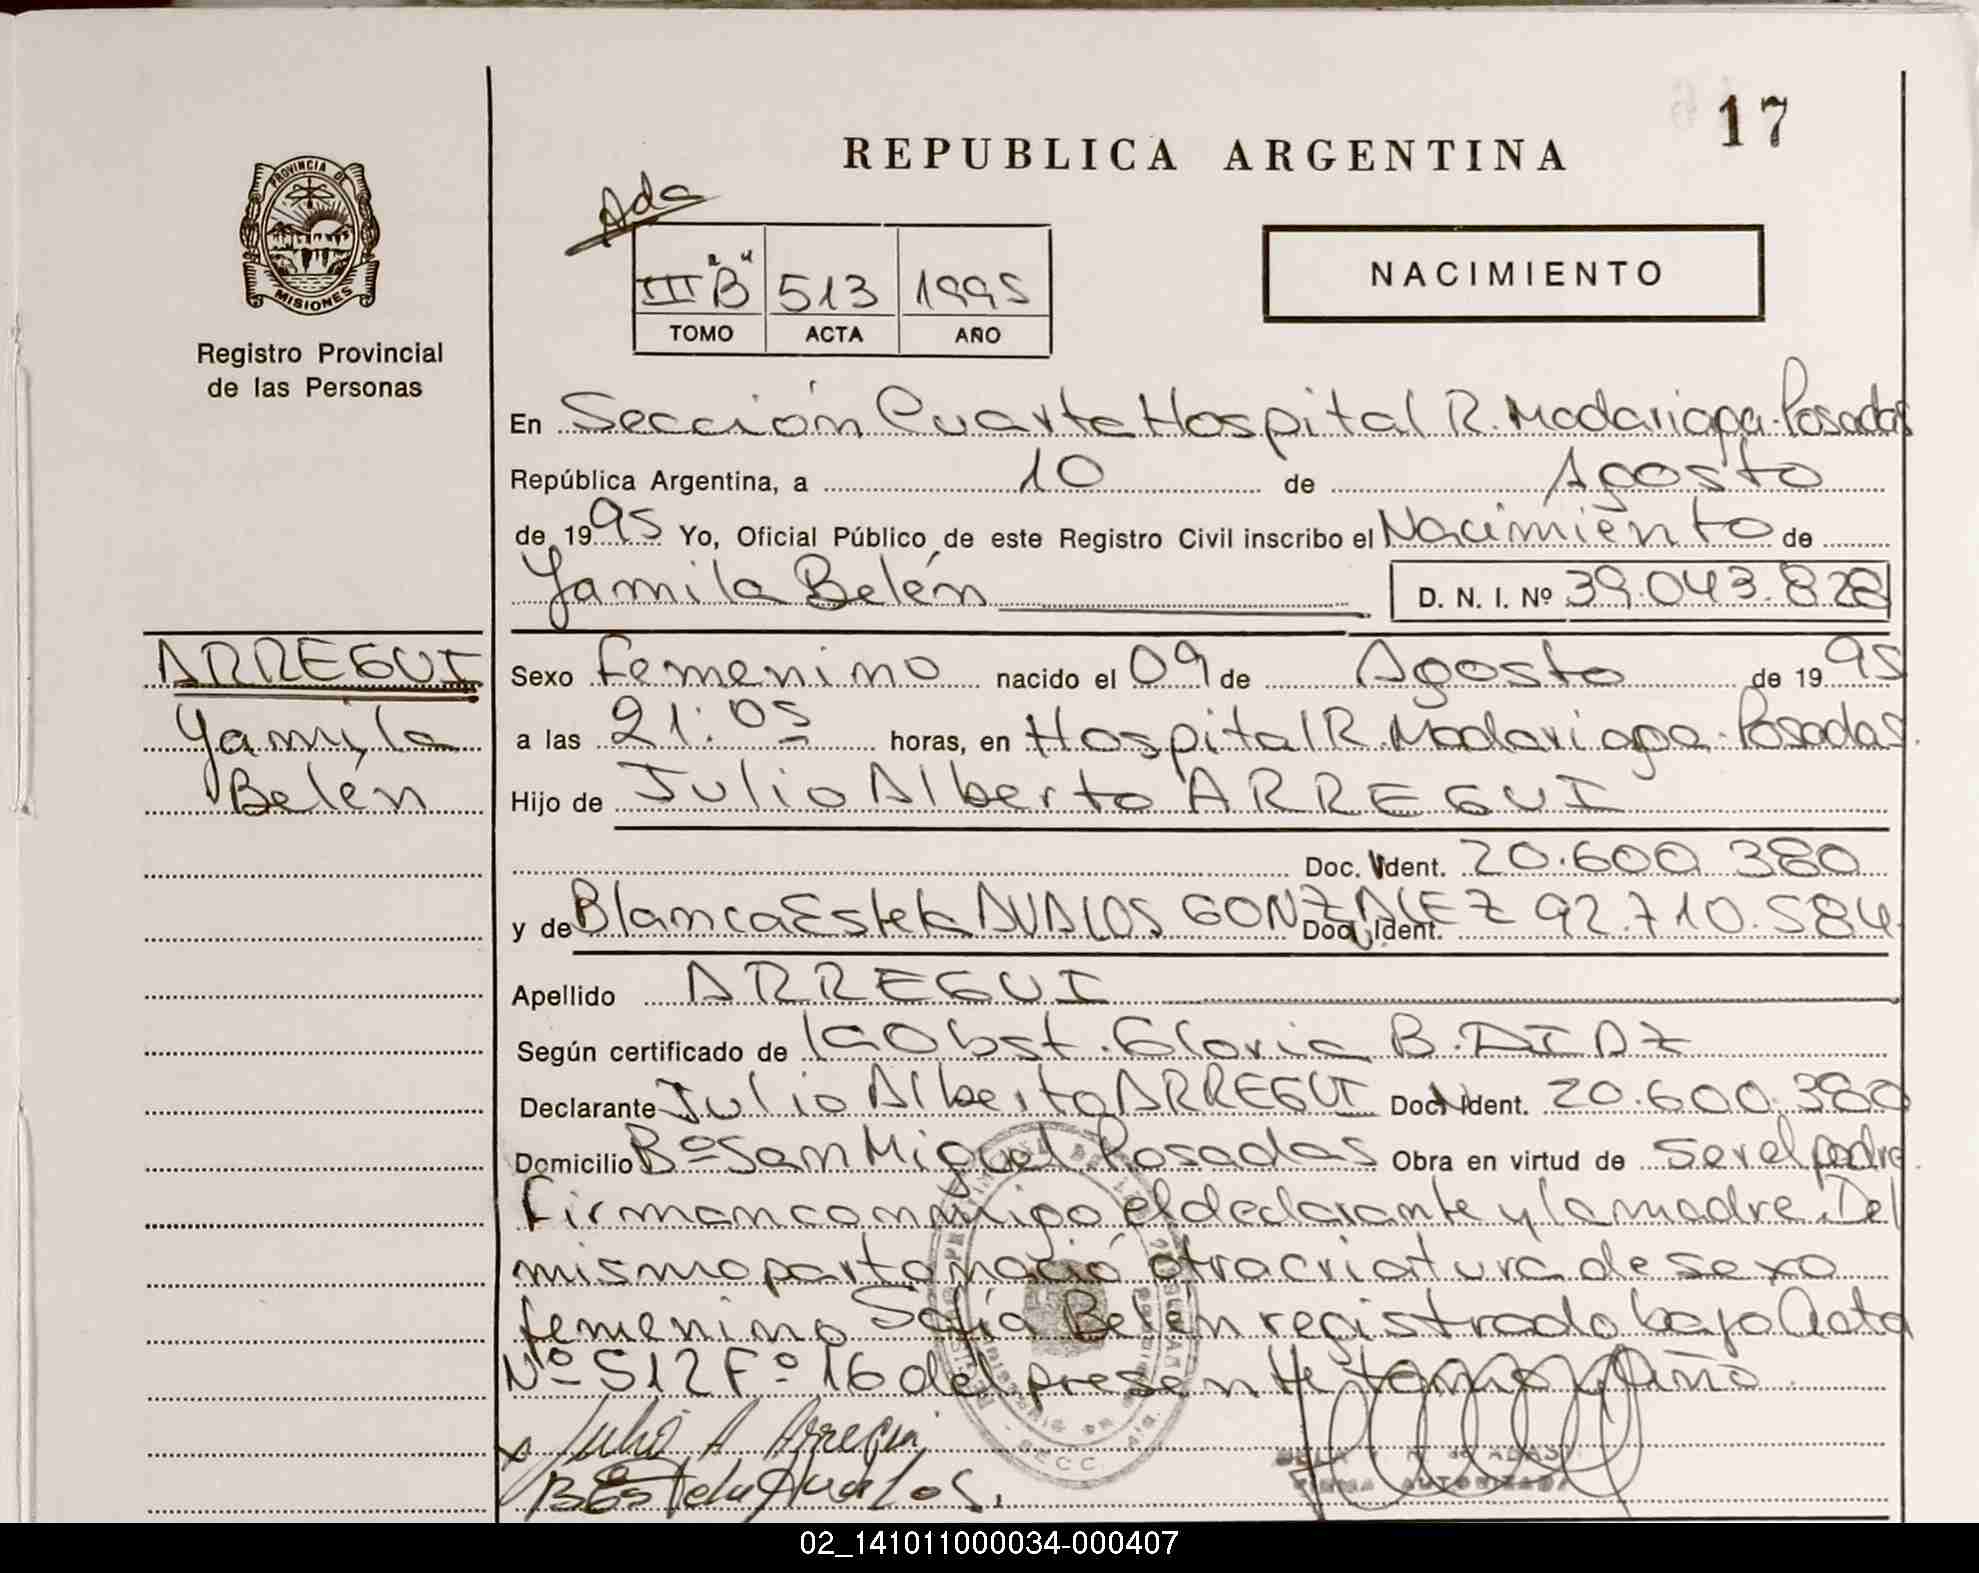 17
REPUBLICA ARGENTINA
Ada
PROVINCIA DE
MISIONES
III "B" 513 1995
TOMO ACTA AÑO
NACIMIENTO
Registro Provincial
de las Personas
En Sección Cuarta Hospital R. Madariaga - Posadas
República Argentina, a 10 de Agosto
de 1995 Yo, Oficial Público de este Registro Civil inscribo el Nacimiento de
Yamila Belén D. N. I. Nº 39.043.828
ARREGUI
Yamila
Belén
Sexo femenino nacido el 09 de Agosto de 1995
a las 21:05 horas, en Hospital R. Madariaga - Posadas.
Hijo de Julio Alberto ARREGUI
Doc. Ident. 20.600.380
y de Blanca Estela AVALOS GONZALEZ Doc. Ident. 92.710.584
Apellido ARREGUI
Según certificado de la Obst. Gloria B. DIAZ
Declarante Julio Alberto ARREGUI Doc. Ident. 20.600.380
Domicilio Bº San Miguel Posadas Obra en virtud de ser el padre
Firman conmigo el declarante y la madre. Del
mismo parto nació otra criatura de sexo
femenino Sofía Belén registrado bajo Acta
Nº 512 Fº 16 del presente tomo y Año.
x Julio A Arregui
B Estela Avalos.
de ADAS
FIRMA AUTORIZADA
02_141011000034-000407